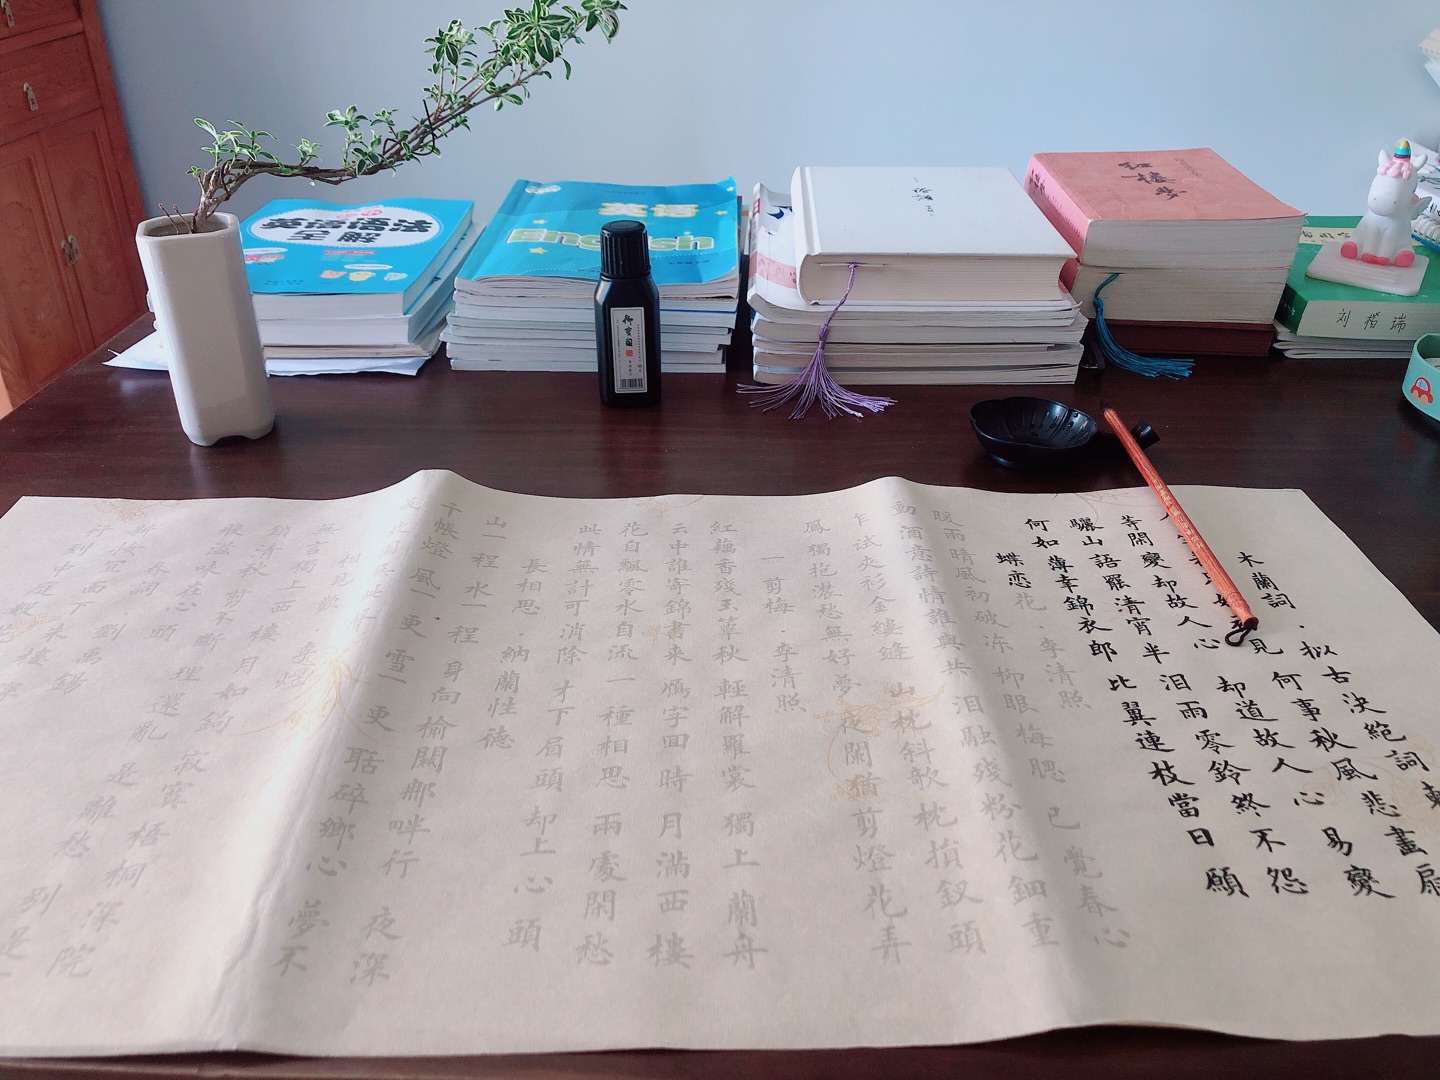 木蘭詞·拟古決絕詞柬
初見 何事秋風悲畫扇
等閑變却故人心 却道故人心易變
驪山語罷清宵半 泪雨零鈴終不怨
何如薄幸錦衣郎 比翼連枝當日願
蝶恋花·李清照
暖雨晴風初破冻 柳眼梅腮 已覺春心
動 酒意詩情誰與共 泪融殘粉花鈿重
乍試夾衫金縷縫 山枕斜欹 枕損釵頭
鳳 獨抱濃愁無好夢 夜闌猶剪燈花弄
一剪梅·李清照
紅藕香殘玉簟秋 輕解羅裳 獨上蘭舟
云中誰寄錦書来 雁字回時 月滿西樓
花自飄零水自流 一種相思 兩處閑愁
此情無計可消除 才下眉頭 却上心頭
長相思·納蘭性德
山一程 水一程 身向榆關那畔行 夜深
千帳燈 風一更 雪一更 聒碎鄉心夢不
相見歡·李煜
無言獨上西樓 月如鉤 寂寞梧桐深院
鎖清秋 剪不斷 理還亂 是離愁 别是
般滋味在心頭
春詞·劉禹錫
新妝宜面下朱樓 深
行到中庭數花
英语语法
全解
英语
English
红楼梦
刘楷瑞